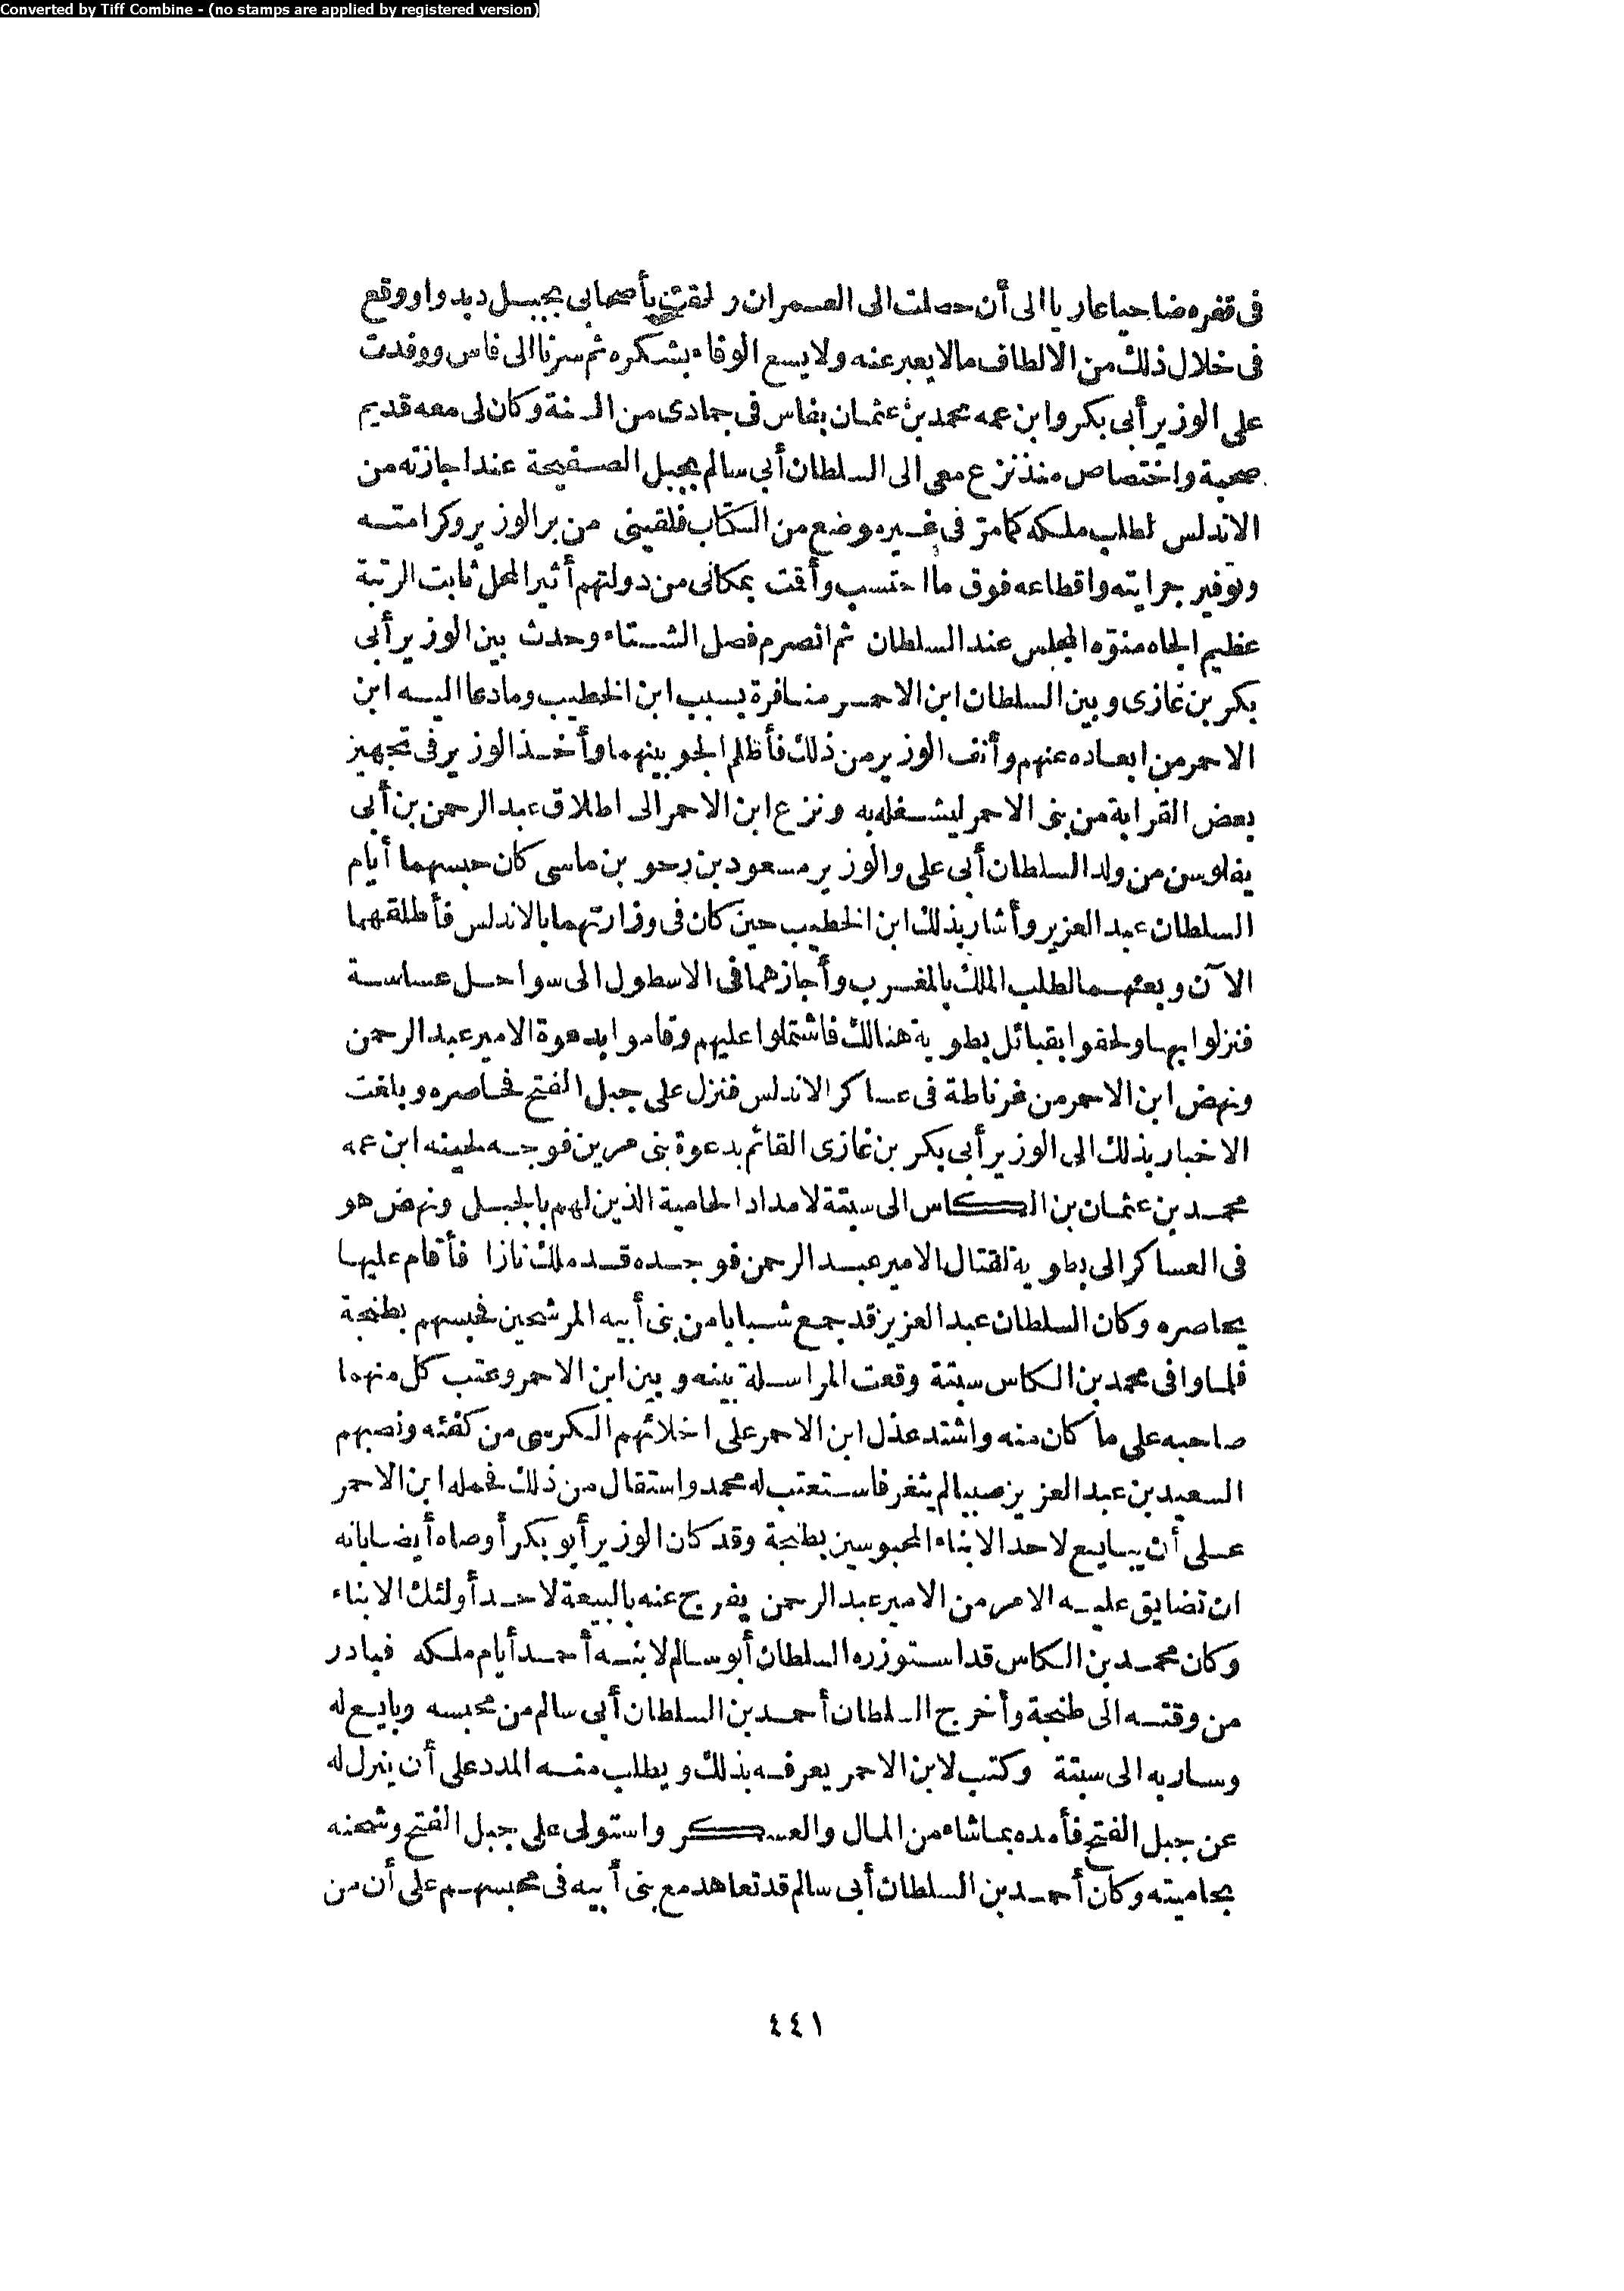 Converted by Tiff Combine - (no stamps are applied by registered version)
فى قفره ضاحيا عاريا الى أن حصلت الى العمران ولحقت بأصحابى بجبل دبدوا ووقع
فى خلال ذلك من الالطاف مالا يعبر عنه ولا يسع الوفاء بشكره ثم سرنا الى فاس ووفدت
على الوزير أبى بكر وابن عمه محمد بن عثمان بفاس فى جمادى من السنة وكان لى معه قديم
صحبة واختصاص منذ نزع معى الى السلطان أبى سالم بجبل الصفيحة عند اجازته من
الاندلس لطلب ملكه كما مر فى غير موضع من الكتاب فلقينى من بر الوزير وكرامته
وتوفير جرايته واقطاعه فوق ما احتسب وأقت بمكانى من دولتهم أثير المحل ثابت الرتبة
عظيم الجاه منوه المجلس عند السلطان ثم انصرم فصل الشتاء وحدث بين الوزير أبى
بكر بن غازى وبين السلطان ابن الاحمر منافرة بسبب ابن الخطيب ومادعا اليه ابن
الاحمر من ابعاده عنهم وأنف الوزير من ذلك فأظلم الجو بينهما وأخذ الوزير فى تجهيز
بعض القرابة من بنى الاحمر ليشغله به ونزع ابن الاحمر الى اطلاق عبد الرحمن بن أبى
يفلوسن من ولد السلطان أبى على والوزير مسعود بن رحو بن ماسى كان حبسهما أيام
السلطان عبد العزيز وأشار بذلك ابن الخطيب حين كان فى وزارتهما بالاندلس فأطلقهما
الآن وبعثهما لطلب الملك بالمغرب وأجازهما فى الاسطول الى سواحل عساسة
فنزلوا بها ولحقوا بقبائل بطوية هنالك فاشتملوا عليهم وقاموا بدعوة الامير عبد الرحمن
ونهض ابن الاحمر من غرناطة فى عساكر الاندلس فنزل على جبل الفتح فحاصره وبلغت
الاخبار بذلك الى الوزير أبى بكر بن غازى القائم بدعوة بنى مرين فوجه لحينه ابن عمه
محمد بن عثمان بن الكاس الى سبتة لامداد الحامية الذين لهم بالجبل ونهض هو
فى العساكر الى بطوية لقتال الامير عبد الرحمن فوجده قد ملك تازا فأقام عليها
يحاصره وكان السلطان عبد العزيز قد جمع شبابا من بنى أبيه المرشحين فحبسهم بطنجة
فلما وافى محمد بن الكاس سبتة وقعت المراسلة بينه وبين ابن الاحمر وعتب كل منهما
صاحبه على ما كان منه واشتد عذل ابن الاحمر على اخلائهم الكرسى من كفئه ونصبهم
السعيد بن عبد العزيز صبيا لم يثغر فاستعتب له محمد واستقال من ذلك فحمله ابن الاحمر
على أن يبايع لاحد الابناء المحبوسين بطنجة وقد كان الوزير أبو بكر أوصاه أيضا بانه
ان تضايق عليه الامر من الامير عبد الرحمن يفرج عنه بالبيعة لاحد أولئك الابناء
وكان محمد بن الكاس قد استوزره السلطان أبو سالم لابنه أحمد أيام ملكه فبادر
من وقته الى طنجة وأخرج السلطان أحمد بن السلطان أبى سالم من محبسه وبايع له
وسار به الى سبتة وكتب لابن الاحمر يعرفه بذلك ويطلب منه المدد على أن ينزل له
عن جبل الفتح فأمده بماشاء من المال والعسكر واستولى على جبل الفتح وشحنه
بحاميته وكان أحمد بن السلطان أبى سالم قد تعاهد مع بنى أبيه فى محبسهم على أن من
٤٤١